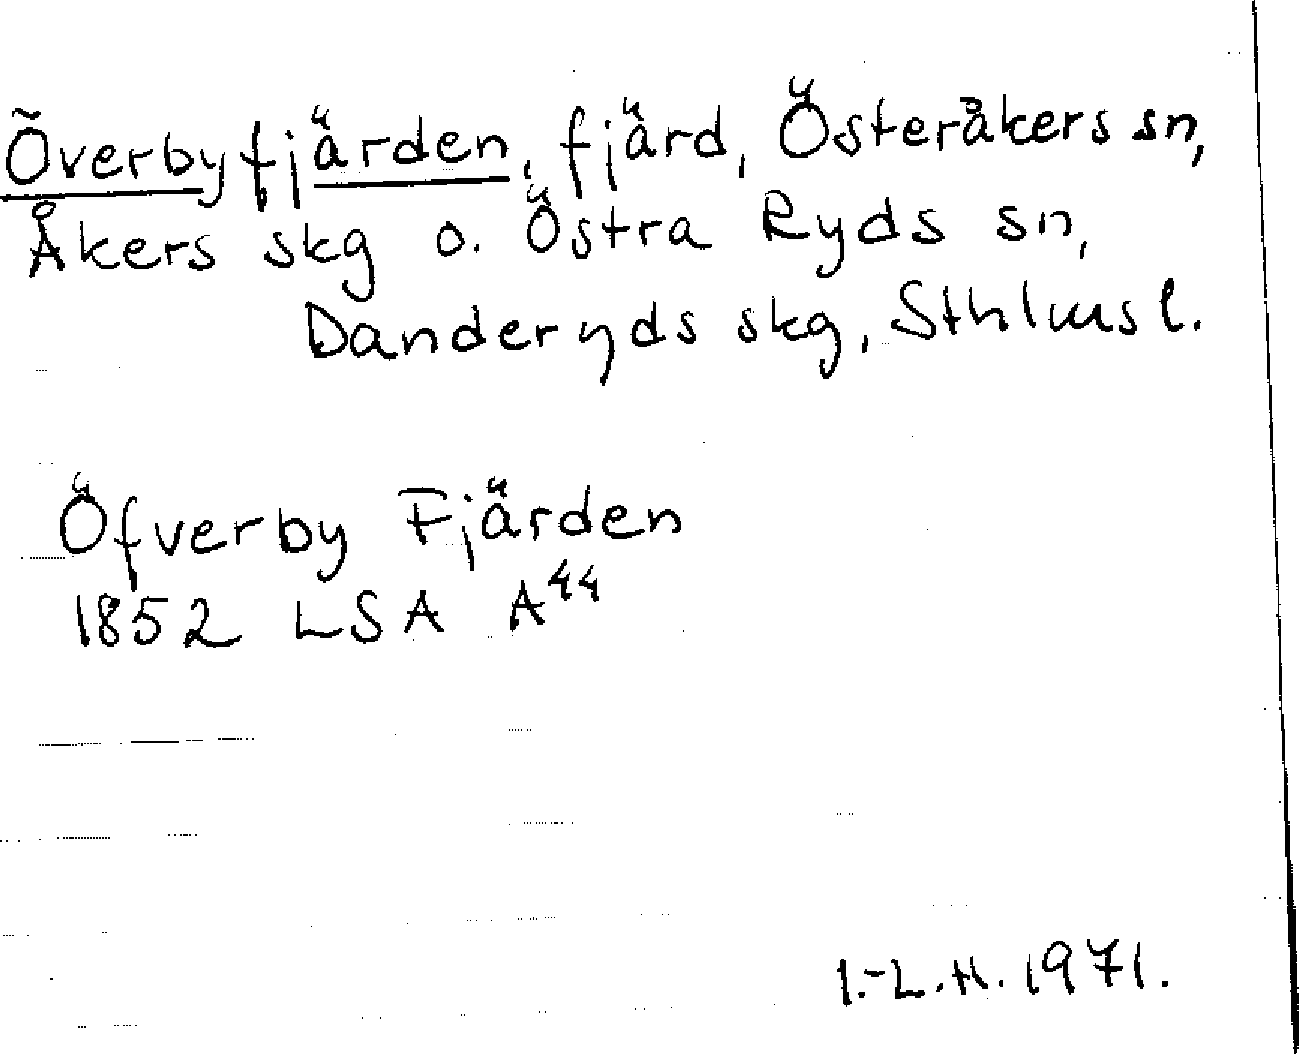 Överbyfjärden, fjärd, Österåkers sn,
Åkers skg o. Östra Ryds sn,
Danderyds skg, Sthlms l.
Öfverby Fjärden
1852 LSA A⁴⁴
I.-L.H. 1971.